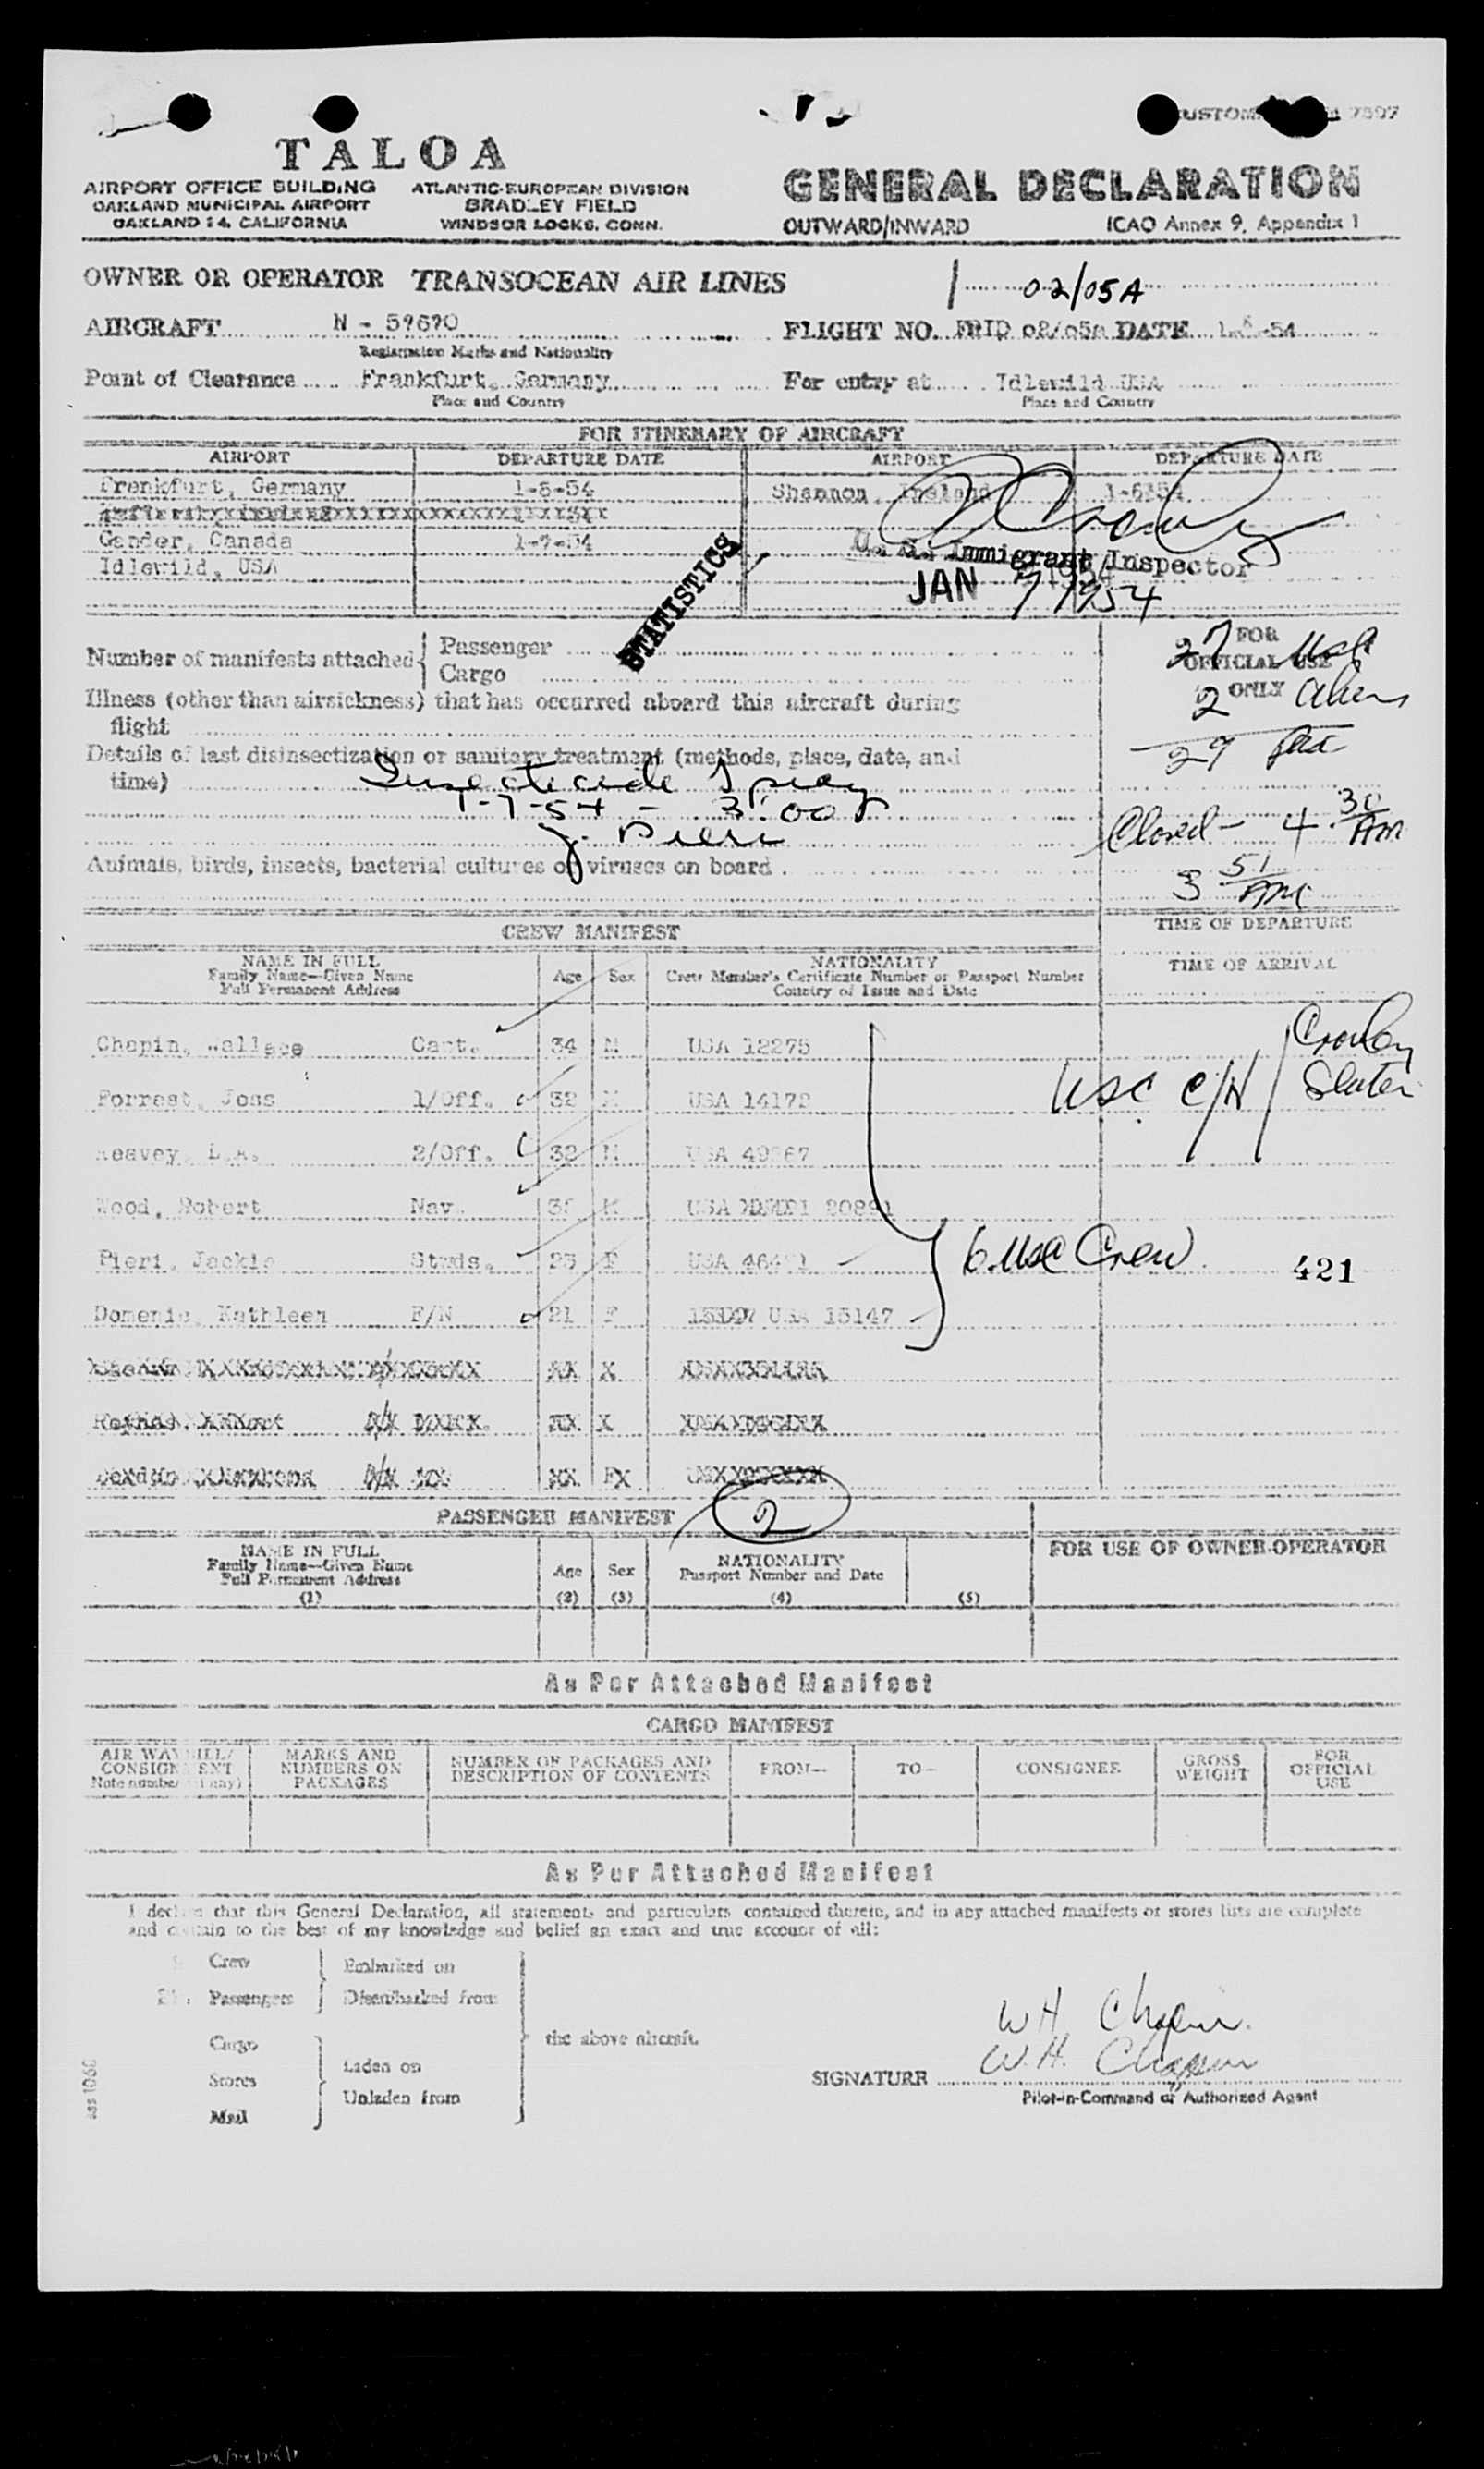 CUSTOMS 7507
TALOA
AIRPORT OFFICE BUILDING
OAKLAND MUNICIPAL AIRPORT
OAKLAND 14, CALIFORNIA
ATLANTIC-EUROPEAN DIVISION
BRADLEY FIELD
WINDSOR LOCKS, CONN.
GENERAL DECLARATION
OUTWARD/INWARD ICAO Annex 9, Appendix 1
OWNER OR OPERATOR TRANSOCEAN AIR LINES
02/05A
AIRCRAFT N - 59670 FLIGHT NO. FRID 02/05A DATE 1-6-54
Registration Marks and Nationality
Point of Clearance Frankfurt, Germany For entry at Idlewild USA
Place and Country Place and Country
FOR ITINERARY OF AIRCRAFT
AIRPORT DEPARTURE DATE AIRPORT DEPARTURE DATE
Frankfurt, Germany 1-6-54 Shannon, Ireland 1-6-54
Gander, Canada 1-7-54
Idlewild, USA
U. S. Immigrant Inspector
JAN 7 1954
STATISTICS
Number of manifests attached
Passenger
Cargo
FOR
OFFICIAL USE
ONLY
27 USC
2 Aliens
29
Illness (other than airsickness) that has occurred aboard this aircraft during
flight
Details of last disinsectization or sanitary treatment (methods, place, date, and
time) Insecticide Spray
1-7-54 - 3:00
J. Pieri
Closed - 4 30 AM
Animals, birds, insects, bacterial cultures or viruses on board
3 51 AM
TIME OF DEPARTURE
TIME OF ARRIVAL
CREW MANIFEST
NAME IN FULL
Family Name—Given Name
Full Permanent Address
Age Sex
NATIONALITY
Crew Member's Certificate Number or Passport Number
Country of Issue and Date
Chapin, Wallace Capt. 34 M USA 12275
Forrest, Joss 1/Off. 32 M USA 14172
Keavey, L.A. 2/Off. 32 M USA
Wood, Robert Nav. M USA 20891
Pieri, Jackie Stwds. 25 F USA
Domenic, Kathleen F/N 21 F USA 15147
USC C/H Crowley
Slater
6 USC Crew
421
PASSENGER MANIFEST 2
NAME IN FULL
Family Name—Given Name
Full Permanent Address
(1)
Age
(2)
Sex
(3)
NATIONALITY
Passport Number and Date
(4)
(5)
FOR USE OF OWNER-OPERATOR
As Per Attached Manifest
CARGO MANIFEST
AIR WAYBILL/
CONSIGNMENT
Note number (if any)
MARKS AND
NUMBERS ON
PACKAGES
NUMBER OF PACKAGES AND
DESCRIPTION OF CONTENTS
FROM—
TO—
CONSIGNEE
GROSS
WEIGHT
FOR
OFFICIAL
USE
As Per Attached Manifest
I declare that this General Declaration, all statements and particulars contained therein, and in any attached manifests or stores lists are complete
and contain to the best of my knowledge and belief an exact and true account of all:
Crew
Passengers
Embarked on
Disembarked from
Cargo
Stores
Mail
Laden on
Unladen from
the above aircraft.
W H Chapin
W.H. Chapin
SIGNATURE
Pilot-in-Command or Authorized Agent